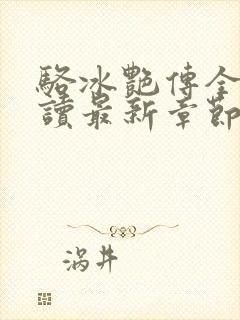 駱冰艷傳全
讀最新章節
涡井